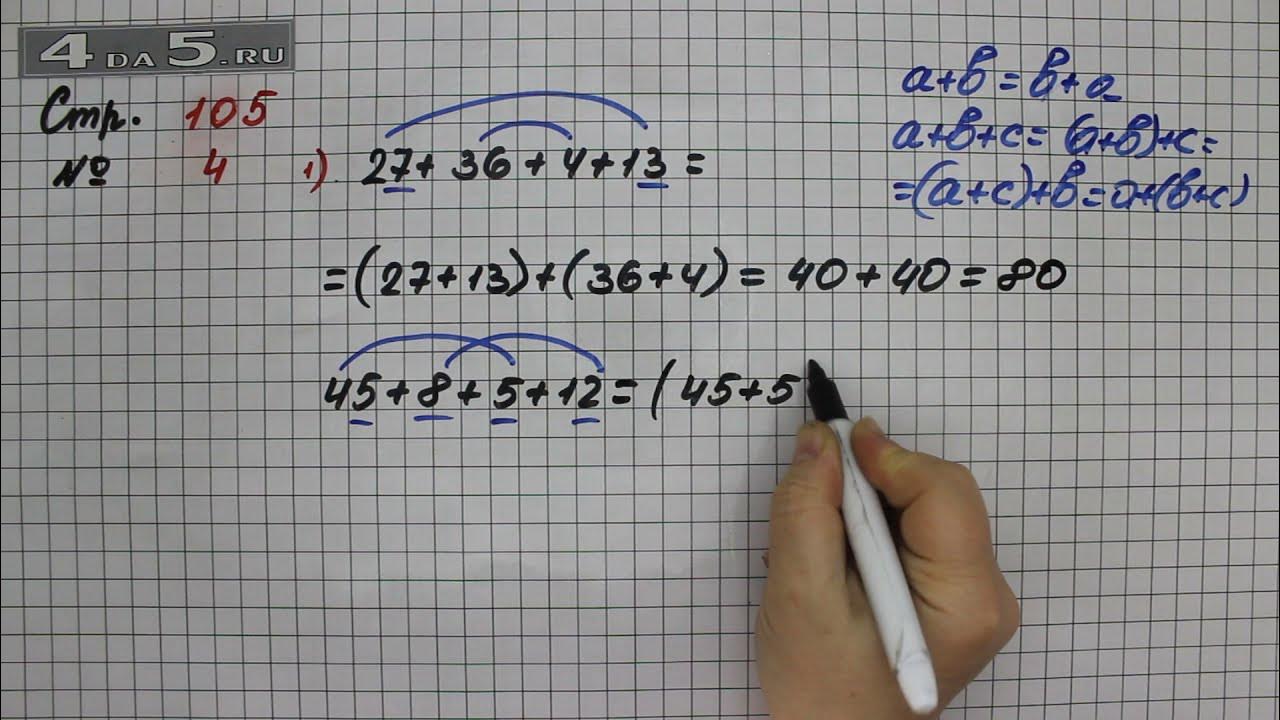 4 DA 5.RU
Стр. 105
№ 4
1) 27 + 36 + 4 + 13 =
= (27 + 13) + (36 + 4) = 40 + 40 = 80
45 + 8 + 5 + 12 = (45 + 5
a + b = b + a
a + b + c = (a + b) + c =
= (a + c) + b = a + (b + c)